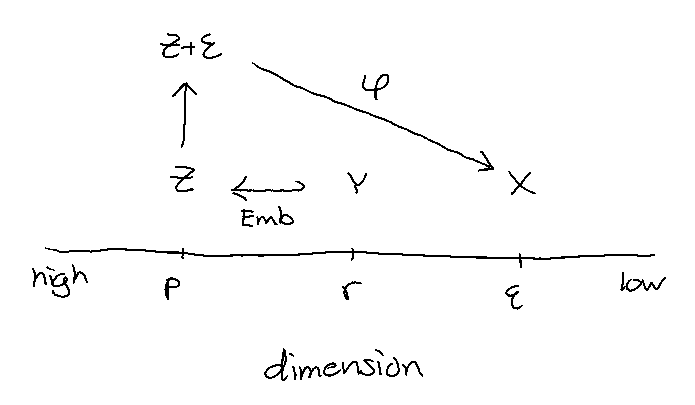 Z+ε
φ
Z Y X
Emb
high p r q low
dimension